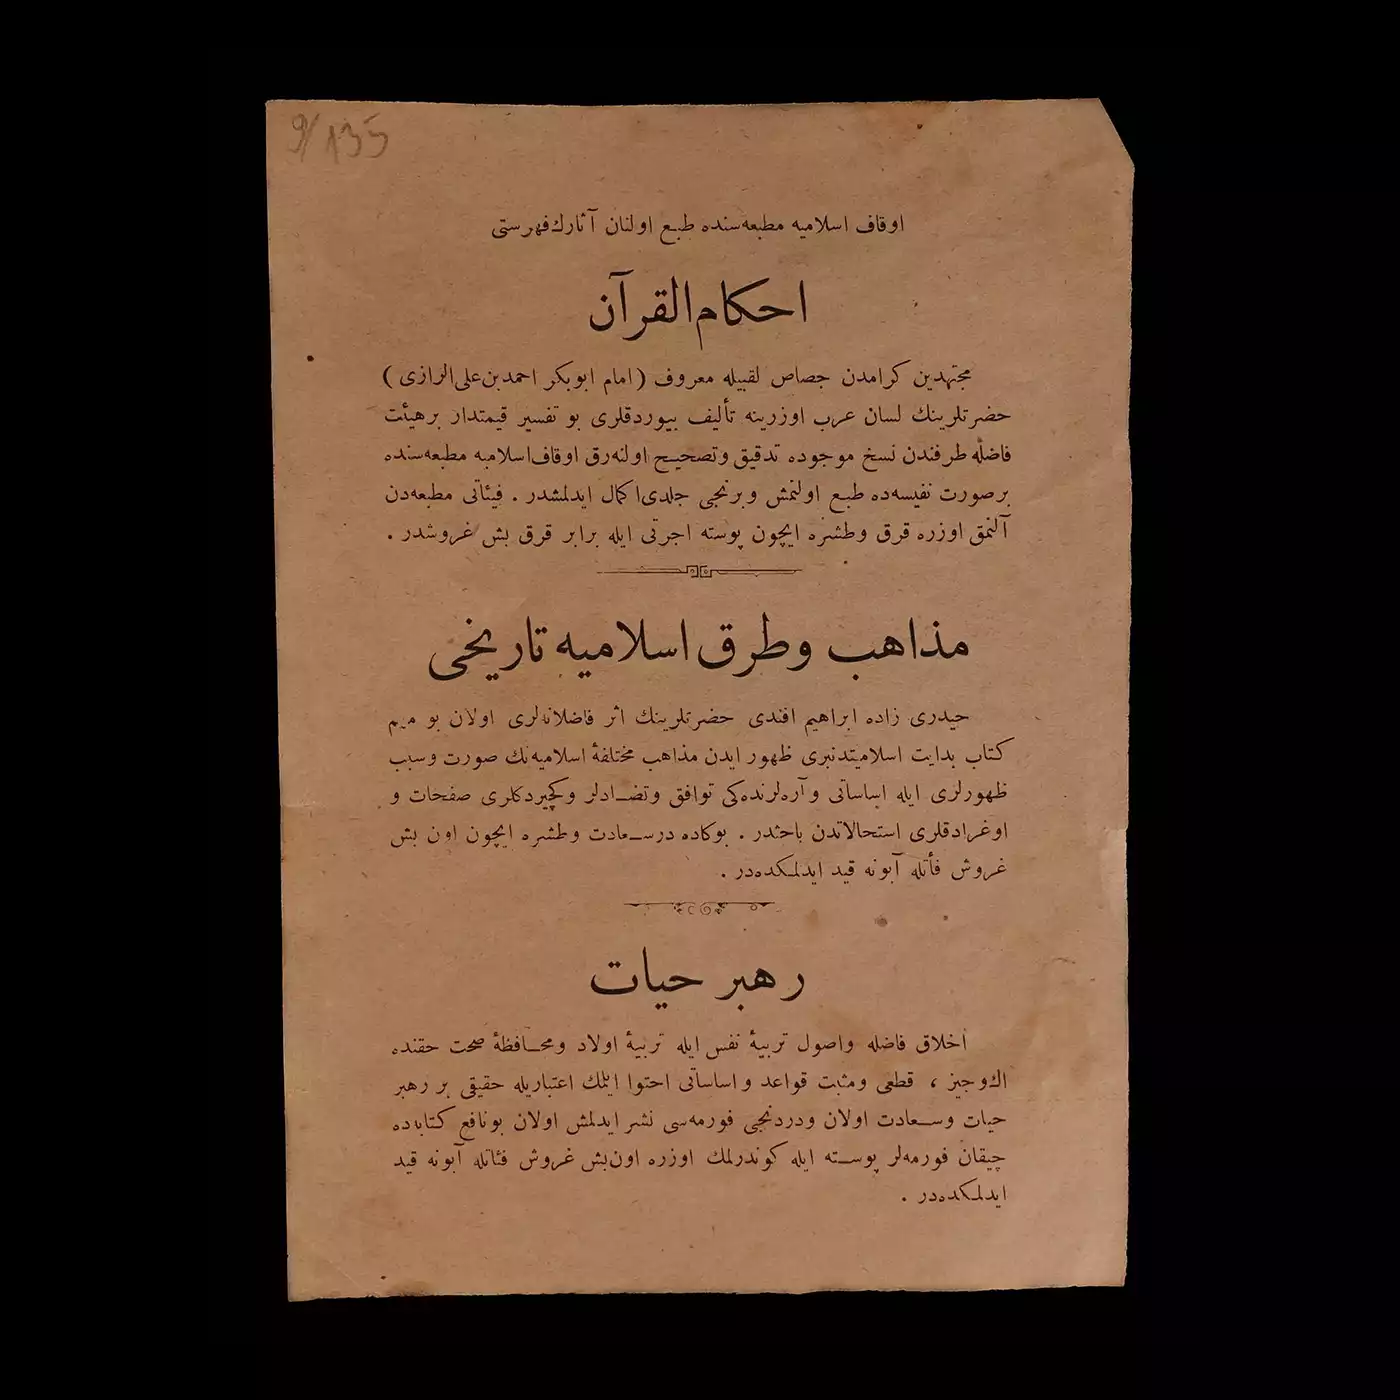 9/135
اوقاف اسلامیه مطبعه‌سنده طبع اولنان آثارك فهرستی
احكام القرآن
مجتهدین كرامدن جصاص لقبیله معروف ( امام ابوبكر احمد بن علی الرازی )
حضرتلرینك لسان عرب اوزرینه تألیف بیوردقلری بو تفسیر قیمتدار برهیئت
فاضله طرفندن نسخ موجوده تدقیق وتصحیح اولنه‌رق اوقاف اسلامیه مطبعه‌سنده
برصورت نفیسه‌ده طبع اولنمش وبرنجی جلدی اكمال ایدلمشدر . فیئاتی مطبعه‌دن
آلنمق اوزره قرق وطشره ایچون پوسته اجرتی ایله برابر قرق بش غروشدر .
مذاهب وطرق اسلامیه تاریخی
حیدری زاده ابراهیم افندی حضرتلرینك اثر فاضلانه‌لری اولان بو مهم
كتاب بدایت اسلامیتدنبری ظهور ایدن مذاهب مختلفهٔ اسلامیه‌نك صورت وسبب
ظهورلری ایله اساساتی وآره‌لرنده‌كی توافق وتضادلر وكچیردكلری صفحات و
اوغرادقلری استحالاتدن باحثدر . بوكاده درسعادت وطشره ایچون اون بش
غروش فأتله آبونه قید ایدلمكده‌در .
رهبر حیات
اخلاق فاضله واصول تربیهٔ نفس ایله تربیهٔ اولاد ومحافظهٔ صحت حقنده
اك وجیز ، قطعی ومثبت قواعد واساساتی احتوا ایتمك اعتباریله حقیقی بر رهبر
حیات وسعادت اولان ودردنجی فورمه‌سی نشر ایدلمش اولان بونافع كتابه‌ده
چیقان فورمه‌لر پوسته ایله كوندرلمك اوزره اون‌بش غروش فئاتله آبونه قید
ایدلمكده‌در .